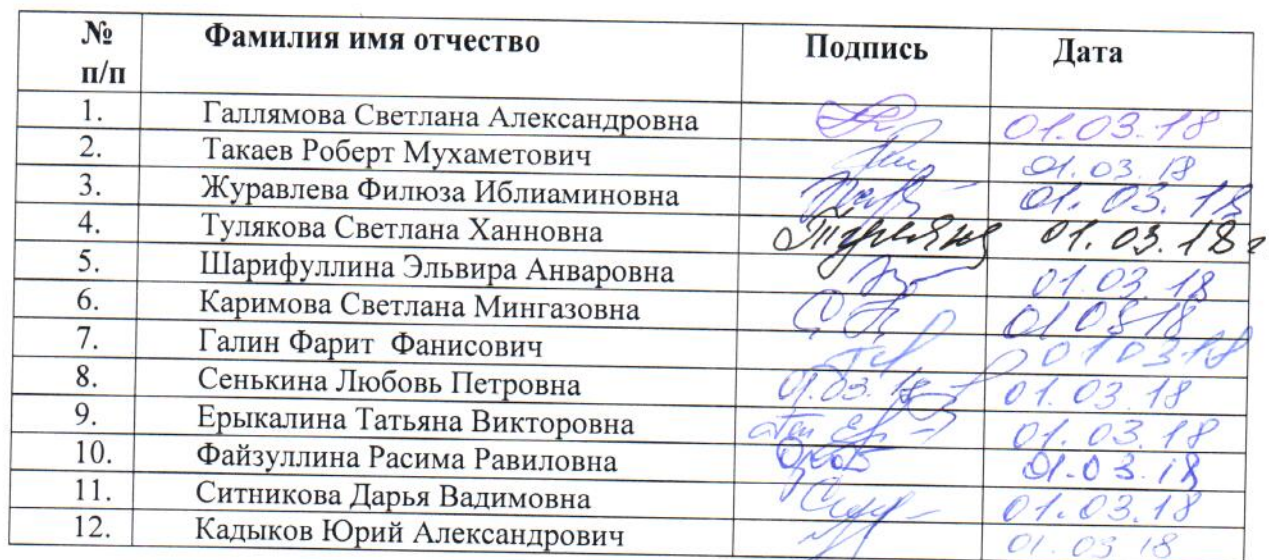 № п/п Фамилия имя отчество Подпись Дата
1. Галлямова Светлана Александровна 01.03.18
2. Такаев Роберт Мухаметович 01.03.18
3. Журавлева Филюза Иблиаминовна 01.03.18
4. Тулякова Светлана Ханновна 01.03.18 г
5. Шарифуллина Эльвира Анваровна 01.03.18
6. Каримова Светлана Мингазовна 01 03 18
7. Галин Фарит Фанисович 01 03 18
8. Сенькина Любовь Петровна 01.03.18 01.03.18
9. Ерыкалина Татьяна Викторовна 01.03.18
10. Файзуллина Расима Равиловна 01.03.18
11. Ситникова Дарья Вадимовна 01.03.18
12. Кадыков Юрий Александрович 01.03 18